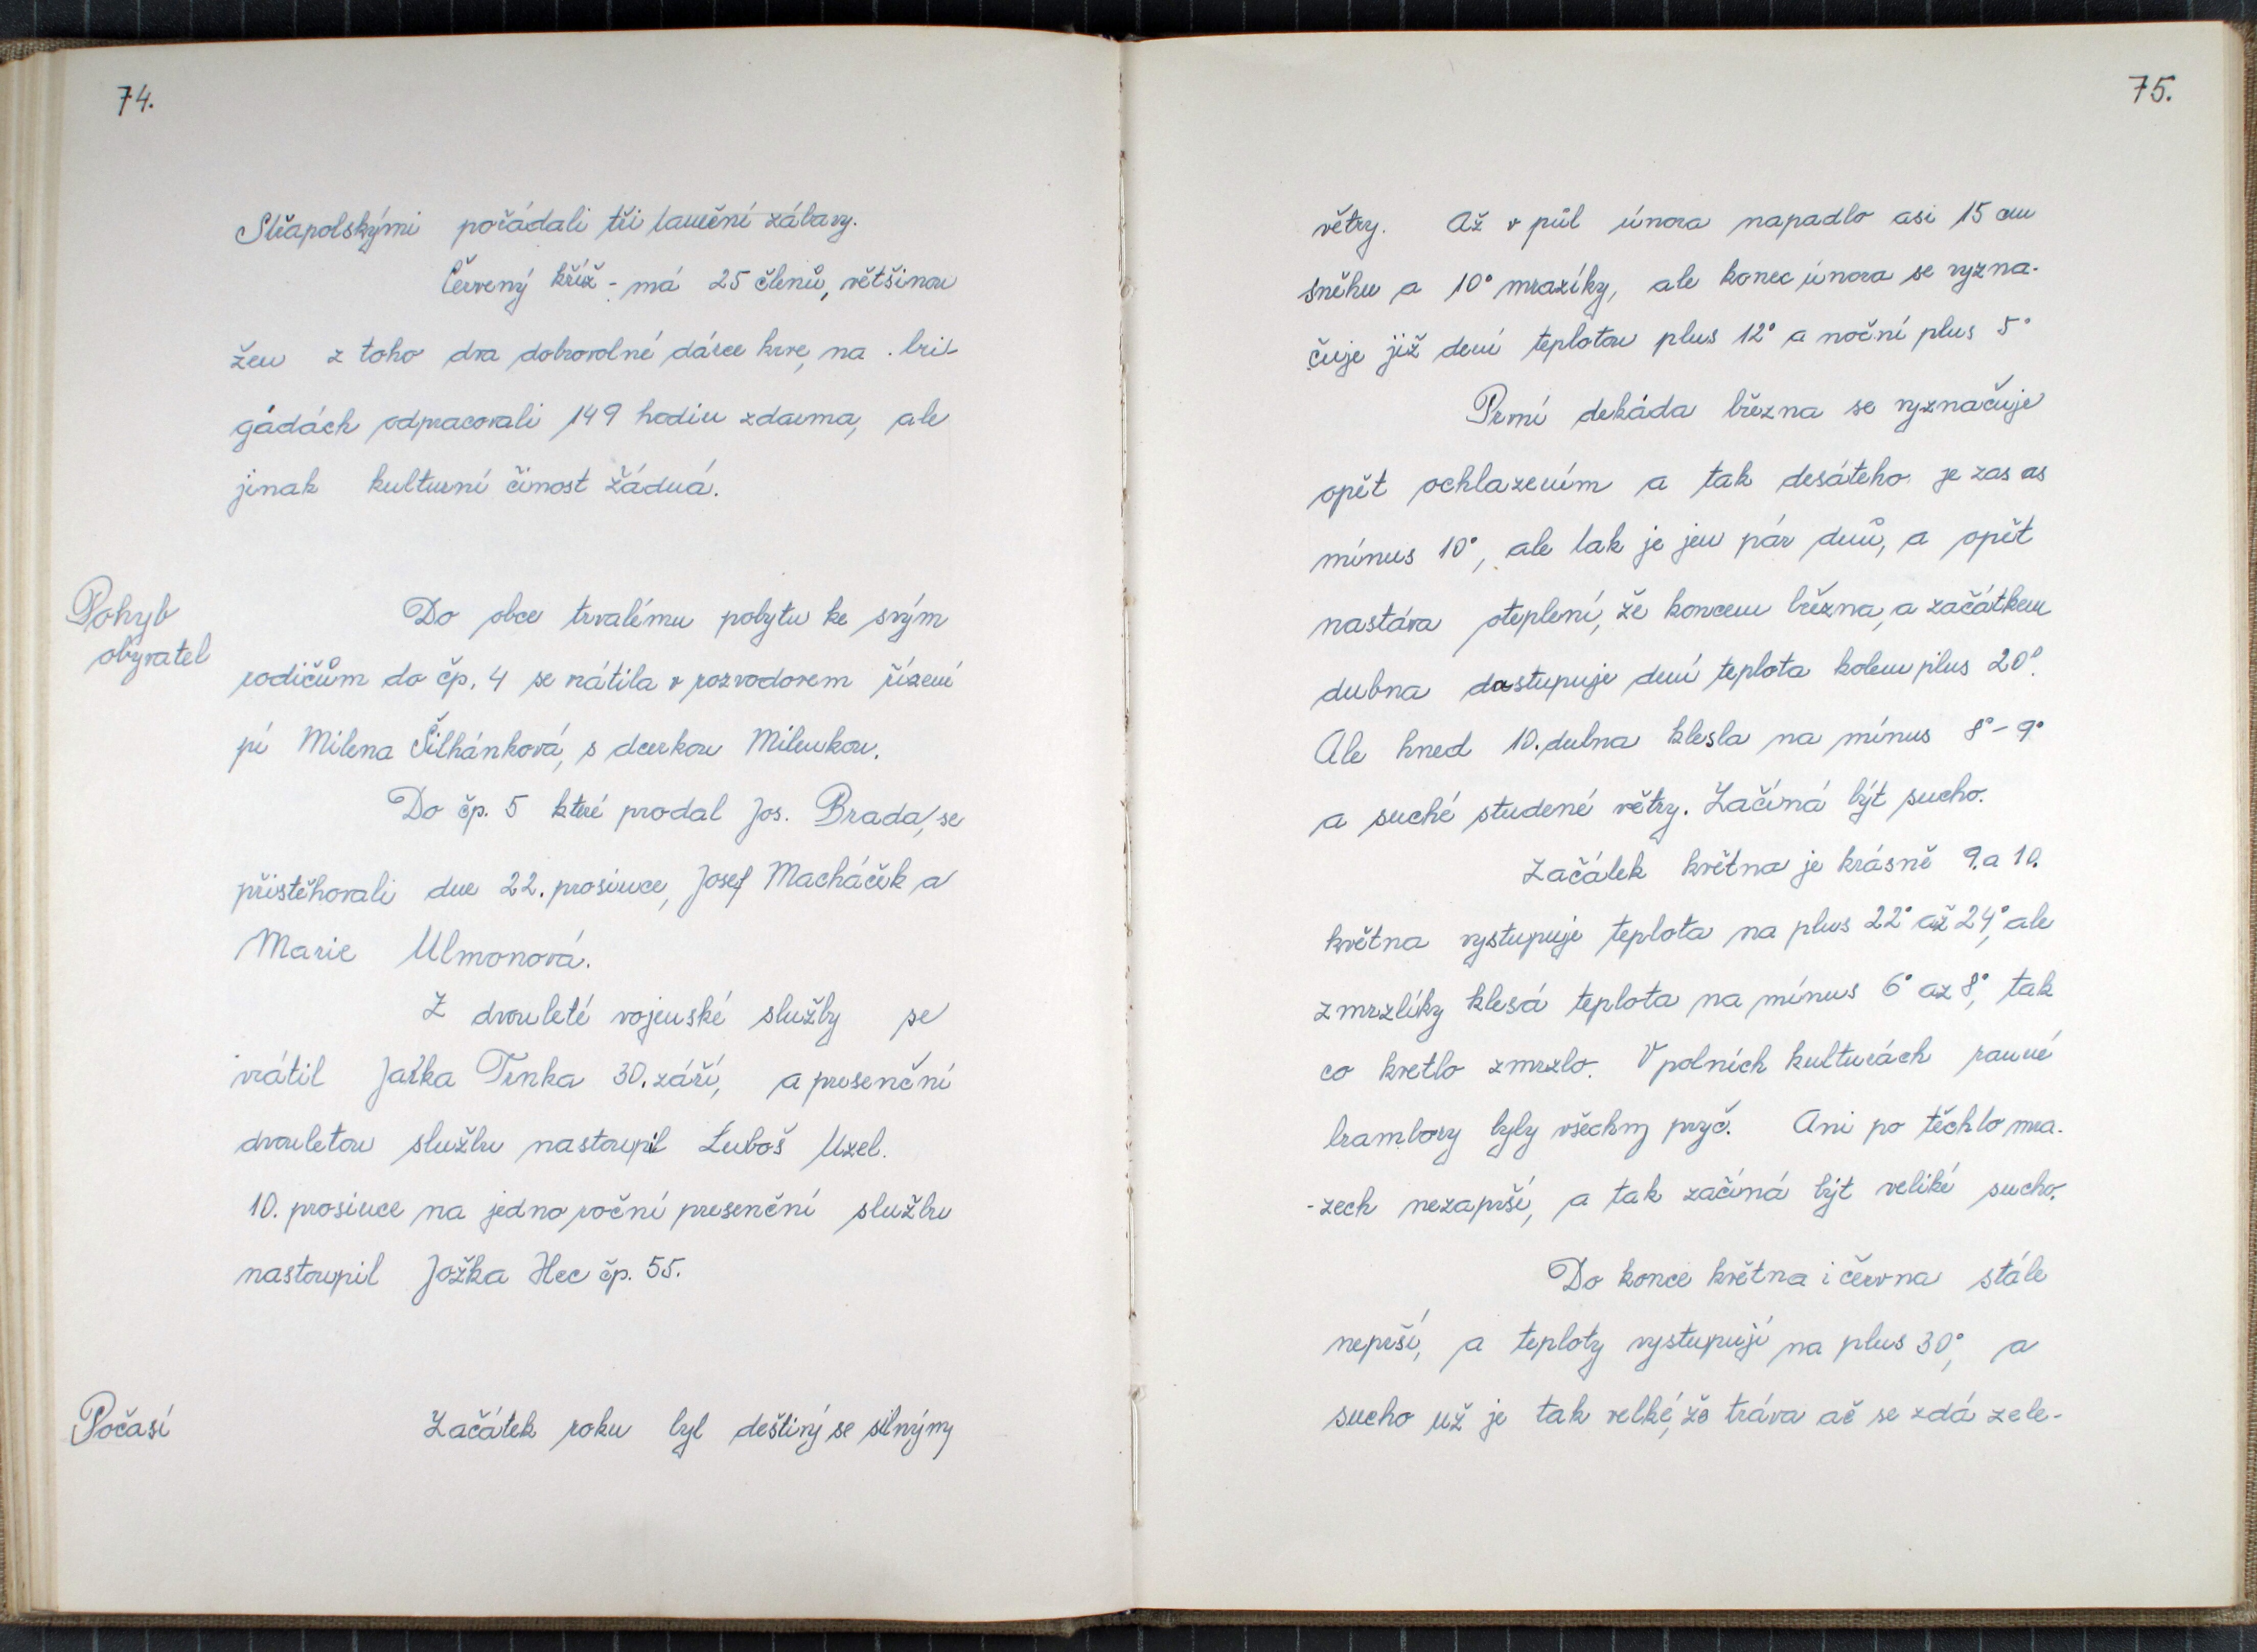 74.
Střapolskými pořádali tři taneční zábavy.
Červený kříž - má 25 členů, většinou
žen z toho dva dobrovolné dárce krve, na bri-
gádách odpracovali 149 hodin zdarma, ale
jinak kulturní činost žádná.
Pohyb
obyvatel
Do obce trvalému pobytu ke svým
rodičům do čp. 4 se vrátila v rozvodovem řízení
pí Milena Šilhánková, s dcerkou Milenkou.
Do čp. 5 které prodal Jos. Brada, se
přistěhovali dne 22. prosince, Josef Macháček a
Marie Ulmonová.
Z dvouleté vojenské služby se
vrátil Jarka Trnka 30. září, a presenční
dvouletou službu nastoupil Luboš Uzel.
10. prosince na jedno roční presenční službu
nastoupil Jožka Hec čp. 55.
Počasí
Začátek roku byl deštivý se silnými
75.
větry. Až v půl února napadlo asi 15 cm
sněhu a 10° mrazíky, ale konec února se vyzna-
čuje již dení teplotou plus 12° a noční plus 5°
První dekáda března se vyznačuje
opět ochlazením a tak desáteho je zas as
mínus 10°, ale tak je jen pár dnů, a opět
nastáva oteplení, že koncem března, a začátkem
dubna dostupuje dení teplota kolem plus 20°.
Ale hned 10. dubna klesla na mínus 8° - 9°
a suché studené větry. Začíná být sucho.
Začátek května je krásně 9. a 10.
května vystupuje teplota na plus 22° až 24°, ale
zmrzlíky klesá teplota na mínus 6° az 8°, tak
co kvetlo zmrzlo. V polních kulturách ranné
brambory byly všechny pryč. Ani po těchto mra-
-zech nezaprší, a tak začíná být veliké sucho.
Do konce května i června stále
neprší, a teploty vystupují na plus 30°, a
sucho už je tak velké, že tráva ač se zdá zele-